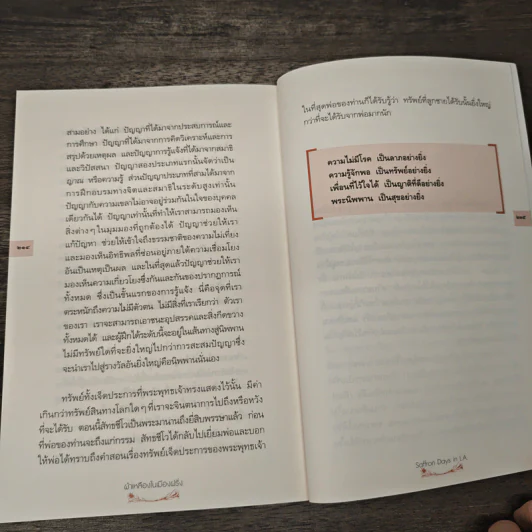 สามอย่าง ได้แก่ ปัญญาที่ได้มาจากประสบการณ์และ
การศึกษา ปัญญาที่ได้มาจากการคิดวิเคราะห์และการ
สรุปด้วยเหตุผล และปัญญาการรู้แจ้งที่ได้มาจากสมาธิ
และวิปัสสนา ปัญญาสองประเภทแรกนั้นจัดว่าเป็น
ญาณ หรือความรู้ ส่วนปัญญาประเภทที่สามได้มาจาก
การฝึกอบรมทางจิตและสมาธิในระดับสูงเท่านั้น
ปัญญากับความเขลาไม่อาจอยู่ร่วมกันในใจของบุคคล
เดียวกันได้ ปัญญาเท่านั้นที่ทำให้เราสามารถมองเห็น
สิ่งต่างๆ ในมุมมองที่ถูกต้องได้ ปัญญาช่วยให้เรา
แก้ปัญหา ช่วยให้เข้าใจถึงธรรมชาติของความไม่เที่ยง
และมองเห็นอิทธิพลที่ซ่อนอยู่ภายใต้ความเชื่อมโยง
อันเป็นเหตุเป็นผล และในที่สุดแล้วปัญญาช่วยให้เรา
มองเห็นความเกี่ยวโยงซึ่งกันและกันของปรากฏการณ์
ทั้งหมด ซึ่งเป็นขั้นแรกของการรู้แจ้ง นี่คือจุดที่เรา
ตระหนักถึงความไม่มีตัวตน ไม่มีสิ่งที่เราเรียกว่า ตัวเรา
ของเรา เราจะสามารถเอาชนะอุปสรรคและสิ่งกีดขวาง
ทั้งหมดได้ และผู้ฝึกได้ระดับนี้จะอยู่ในเส้นทางสู่นิพพาน
ไม่มีทรัพย์ใดที่จะยิ่งใหญ่ไปกว่าการสะสมปัญญาซึ่ง
จะนำเราไปสู่รางวัลอันยิ่งใหญ่คือนิพพานนั่นเอง
ทรัพย์ทั้งเจ็ดประการที่พระพุทธเจ้าทรงแสดงไว้นั้น มีค่า
เกินกว่าทรัพย์สินทางโลกใดๆ ที่เราจะจินตนาการไปถึงหรือหวัง
ที่จะได้รับ ตอนนี้สัทธชีโวเป็นพระมานานถึงยี่สิบพรรษาแล้ว ก่อน
ที่พ่อของท่านจะถึงแก่กรรม สัทธชีโวได้กลับไปเยี่ยมพ่อและบอก
ให้พ่อได้ทราบถึงคำสอนเรื่องทรัพย์เจ็ดประการของพระพุทธเจ้า
ผ้าเหลืองในเมืองฝรั่ง
ในที่สุดพ่อของท่านก็ได้รับรู้ว่า ทรัพย์ที่ลูกชายได้รับนั้นยิ่งใหญ่
กว่าที่จะได้รับจากพ่อมากนัก
ความไม่มีโรค เป็นลาภอย่างยิ่ง
ความรู้จักพอ เป็นทรัพย์อย่างยิ่ง
เพื่อนที่ไว้ใจได้ เป็นญาติที่ดีอย่างยิ่ง
พระนิพพาน เป็นสุขอย่างยิ่ง
Saffron Days in LA